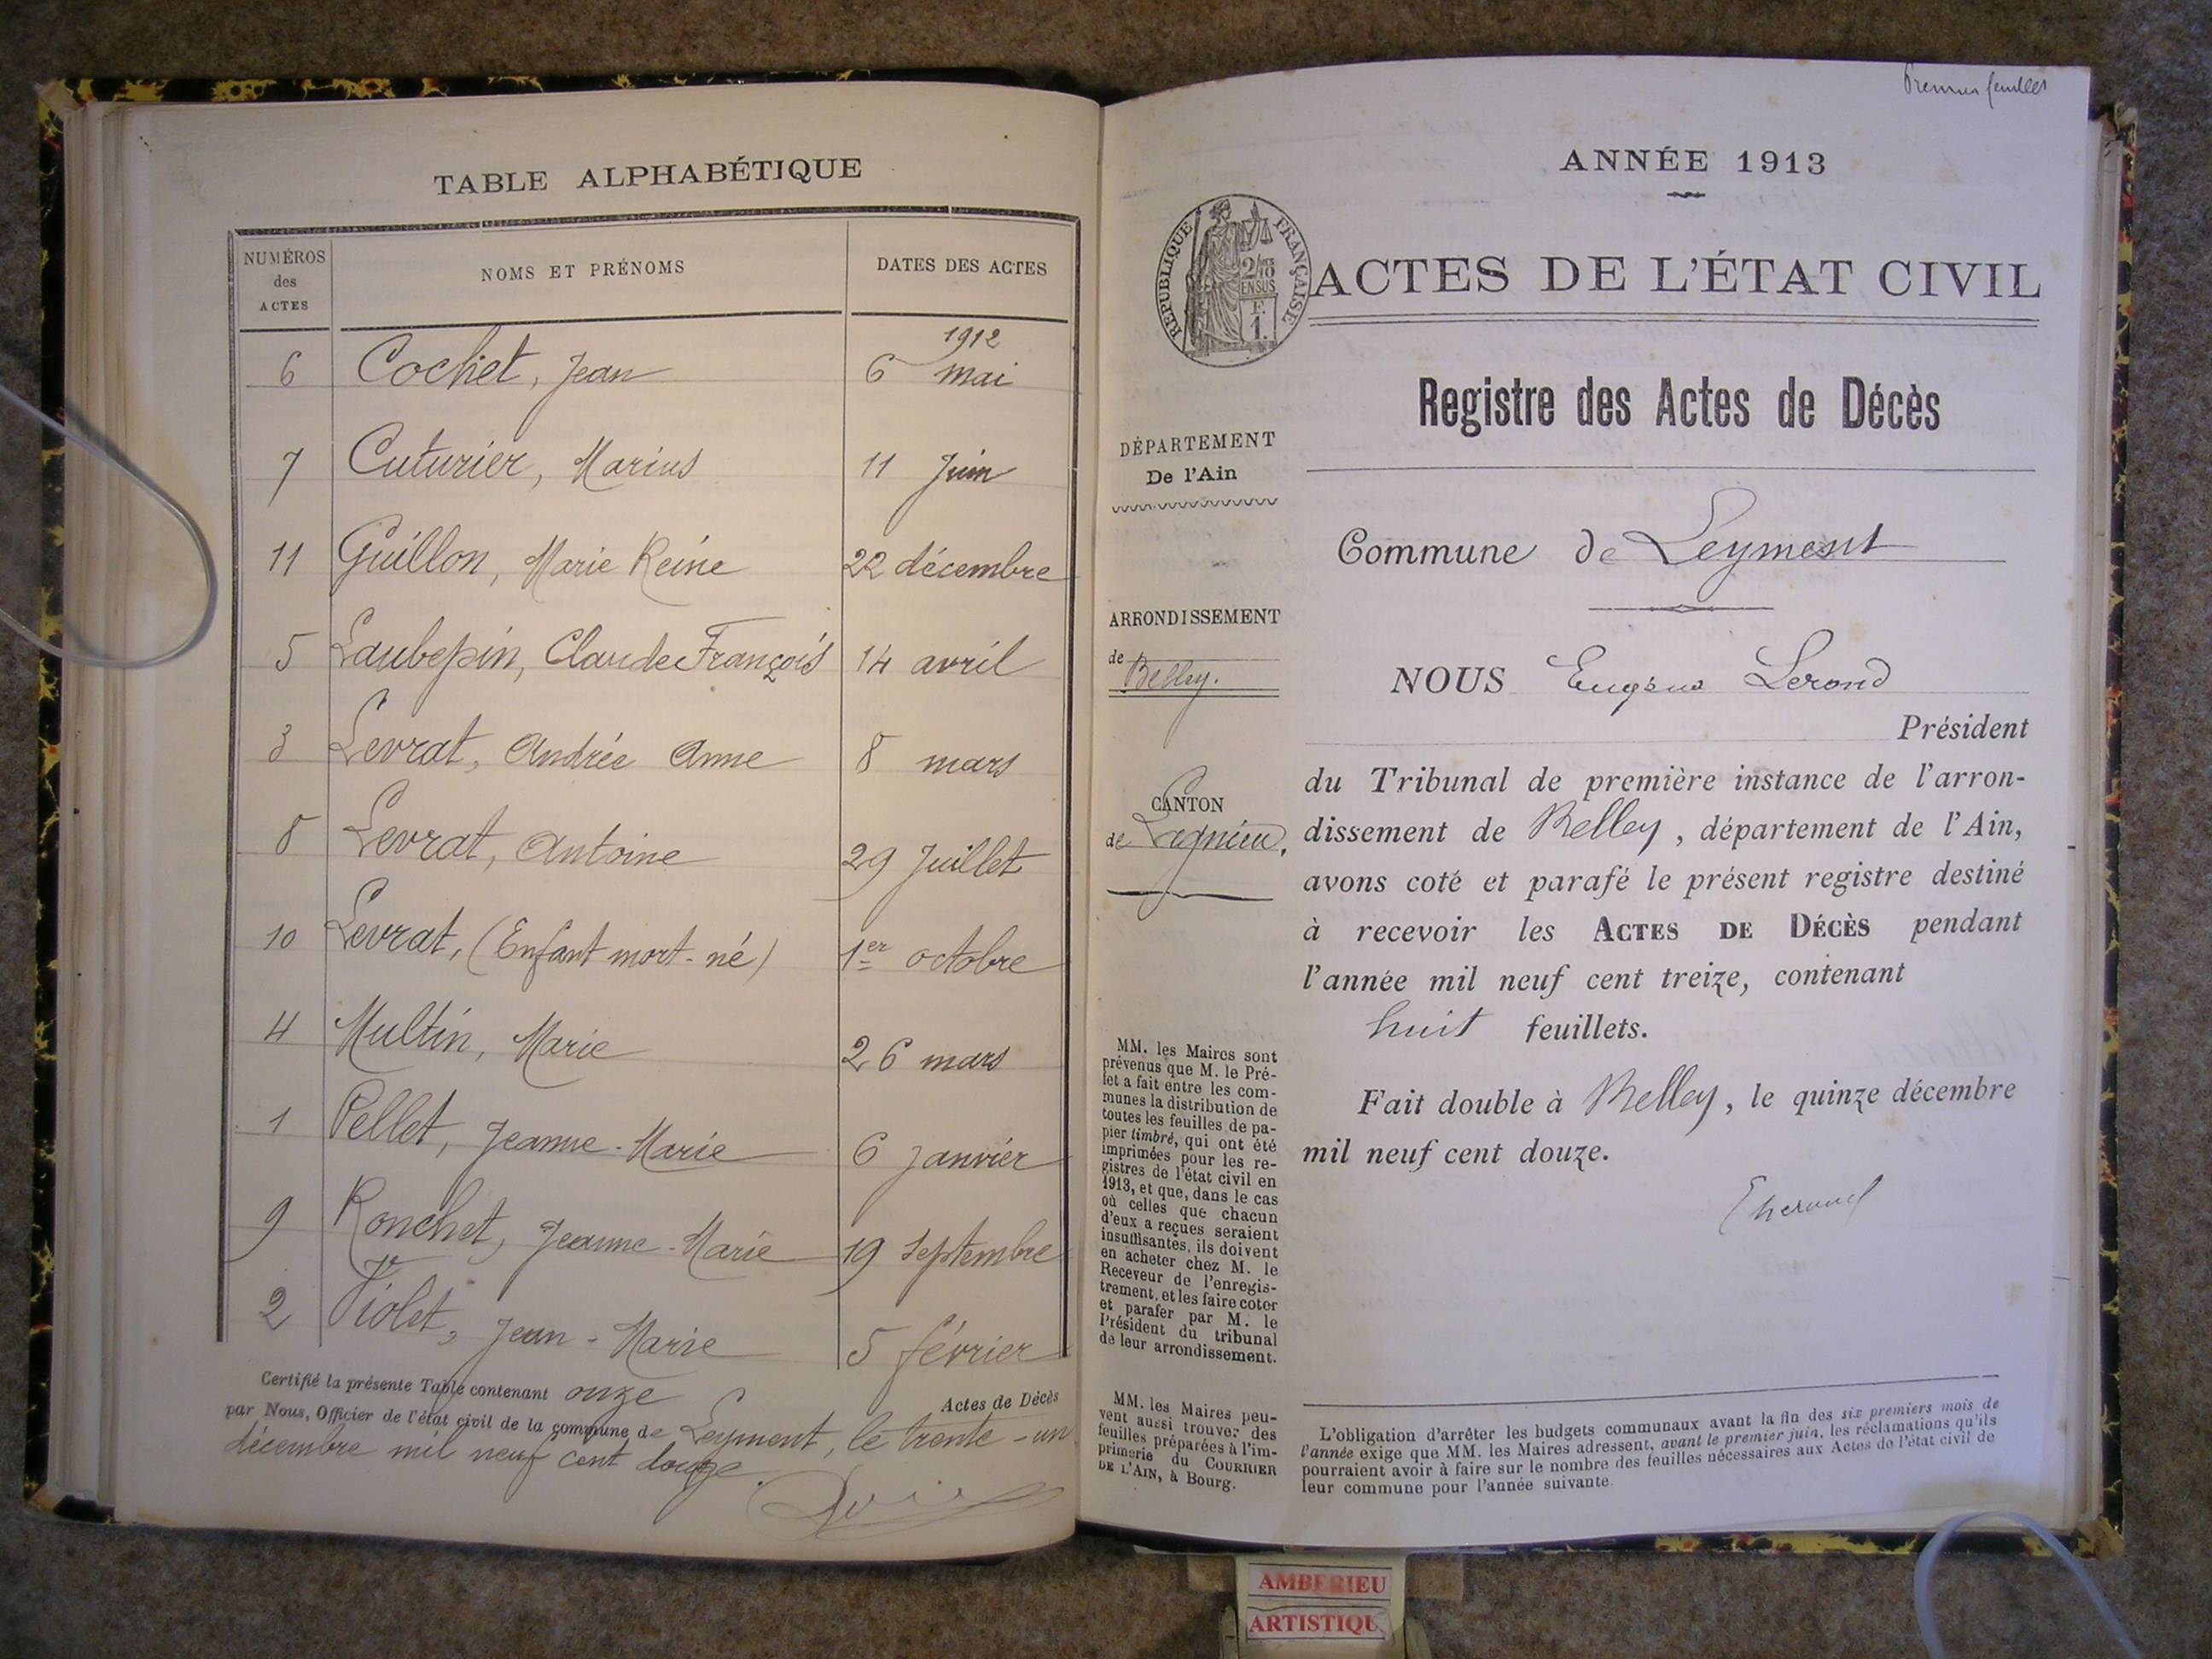 TABLE ALPHABÉTIQUE
NUMÉROS des ACTES NOMS ET PRÉNOMS DATES DES ACTES
1912
6 Cochet, Jean 6 mai
7 Cuturier, Marius 11 Juin
11 Guillon, Marie Reine 22 décembre
5 Laubepin, Claude François 14 avril
3 Levrat, Andrée Anne 8 mars
8 Levrat, Antoine 29 Juillet
10 Levrat, (Enfant mort-né) 1er octobre
4 Multin, Marie 26 mars
1 Pellet, Jeanne-Marie 6 Janvier
9 Ronchet, Jeanne-Marie 19 Septembre
2 Violet, Jean-Marie 5 février
Certifié la présente Table contenant onze Actes de Décès
par Nous, Officier de l'état civil de la commune de Leyment, le trente-un
décembre mil neuf cent douze.
Premier feuillet
ANNÉE 1913
RÉPUBLIQUE FRANÇAISE
2/10
EN SUS
F.
1.
ACTES DE L'ÉTAT CIVIL
Registre des Actes de Décès
DÉPARTEMENT
De l'Ain
Commune de Leyment
ARRONDISSEMENT
de Belley.
CANTON
de Lagnieu.
NOUS Eugène Lerond
Président
du Tribunal de première instance de l'arron-
dissement de Belley, département de l'Ain,
avons coté et parafé le présent registre destiné
à recevoir les ACTES DE DÉCÈS pendant
l'année mil neuf cent treize, contenant
huit feuillets.
Fait double à Belley, le quinze décembre
mil neuf cent douze.
MM. les Maires sont
prévenus que M. le Pré-
fet a fait entre les com-
munes la distribution de
toutes les feuilles de pa-
pier timbré, qui ont été
imprimées pour les re-
gistres de l'état civil en
1913, et que, dans le cas
où celles que chacun
d'eux a reçues seraient
insuffisantes, ils doivent
en acheter chez M. le
Receveur de l'enregis-
trement, et les faire coter
et parafer par M. le
Président du tribunal
de leur arrondissement.
MM. les Maires peu-
vent aussi trouver des
feuilles préparées à l'im-
primerie du COURRIER
DE L'AIN, à Bourg.
L'obligation d'arrêter les budgets communaux avant la fin des six premiers mois de
l'année exige que MM. les Maires adressent, avant le premier juin, les réclamations qu'ils
pourraient avoir à faire sur le nombre des feuilles nécessaires aux Actes de l'état civil de
leur commune pour l'année suivante.
AMBERIEU
ARTISTIQU